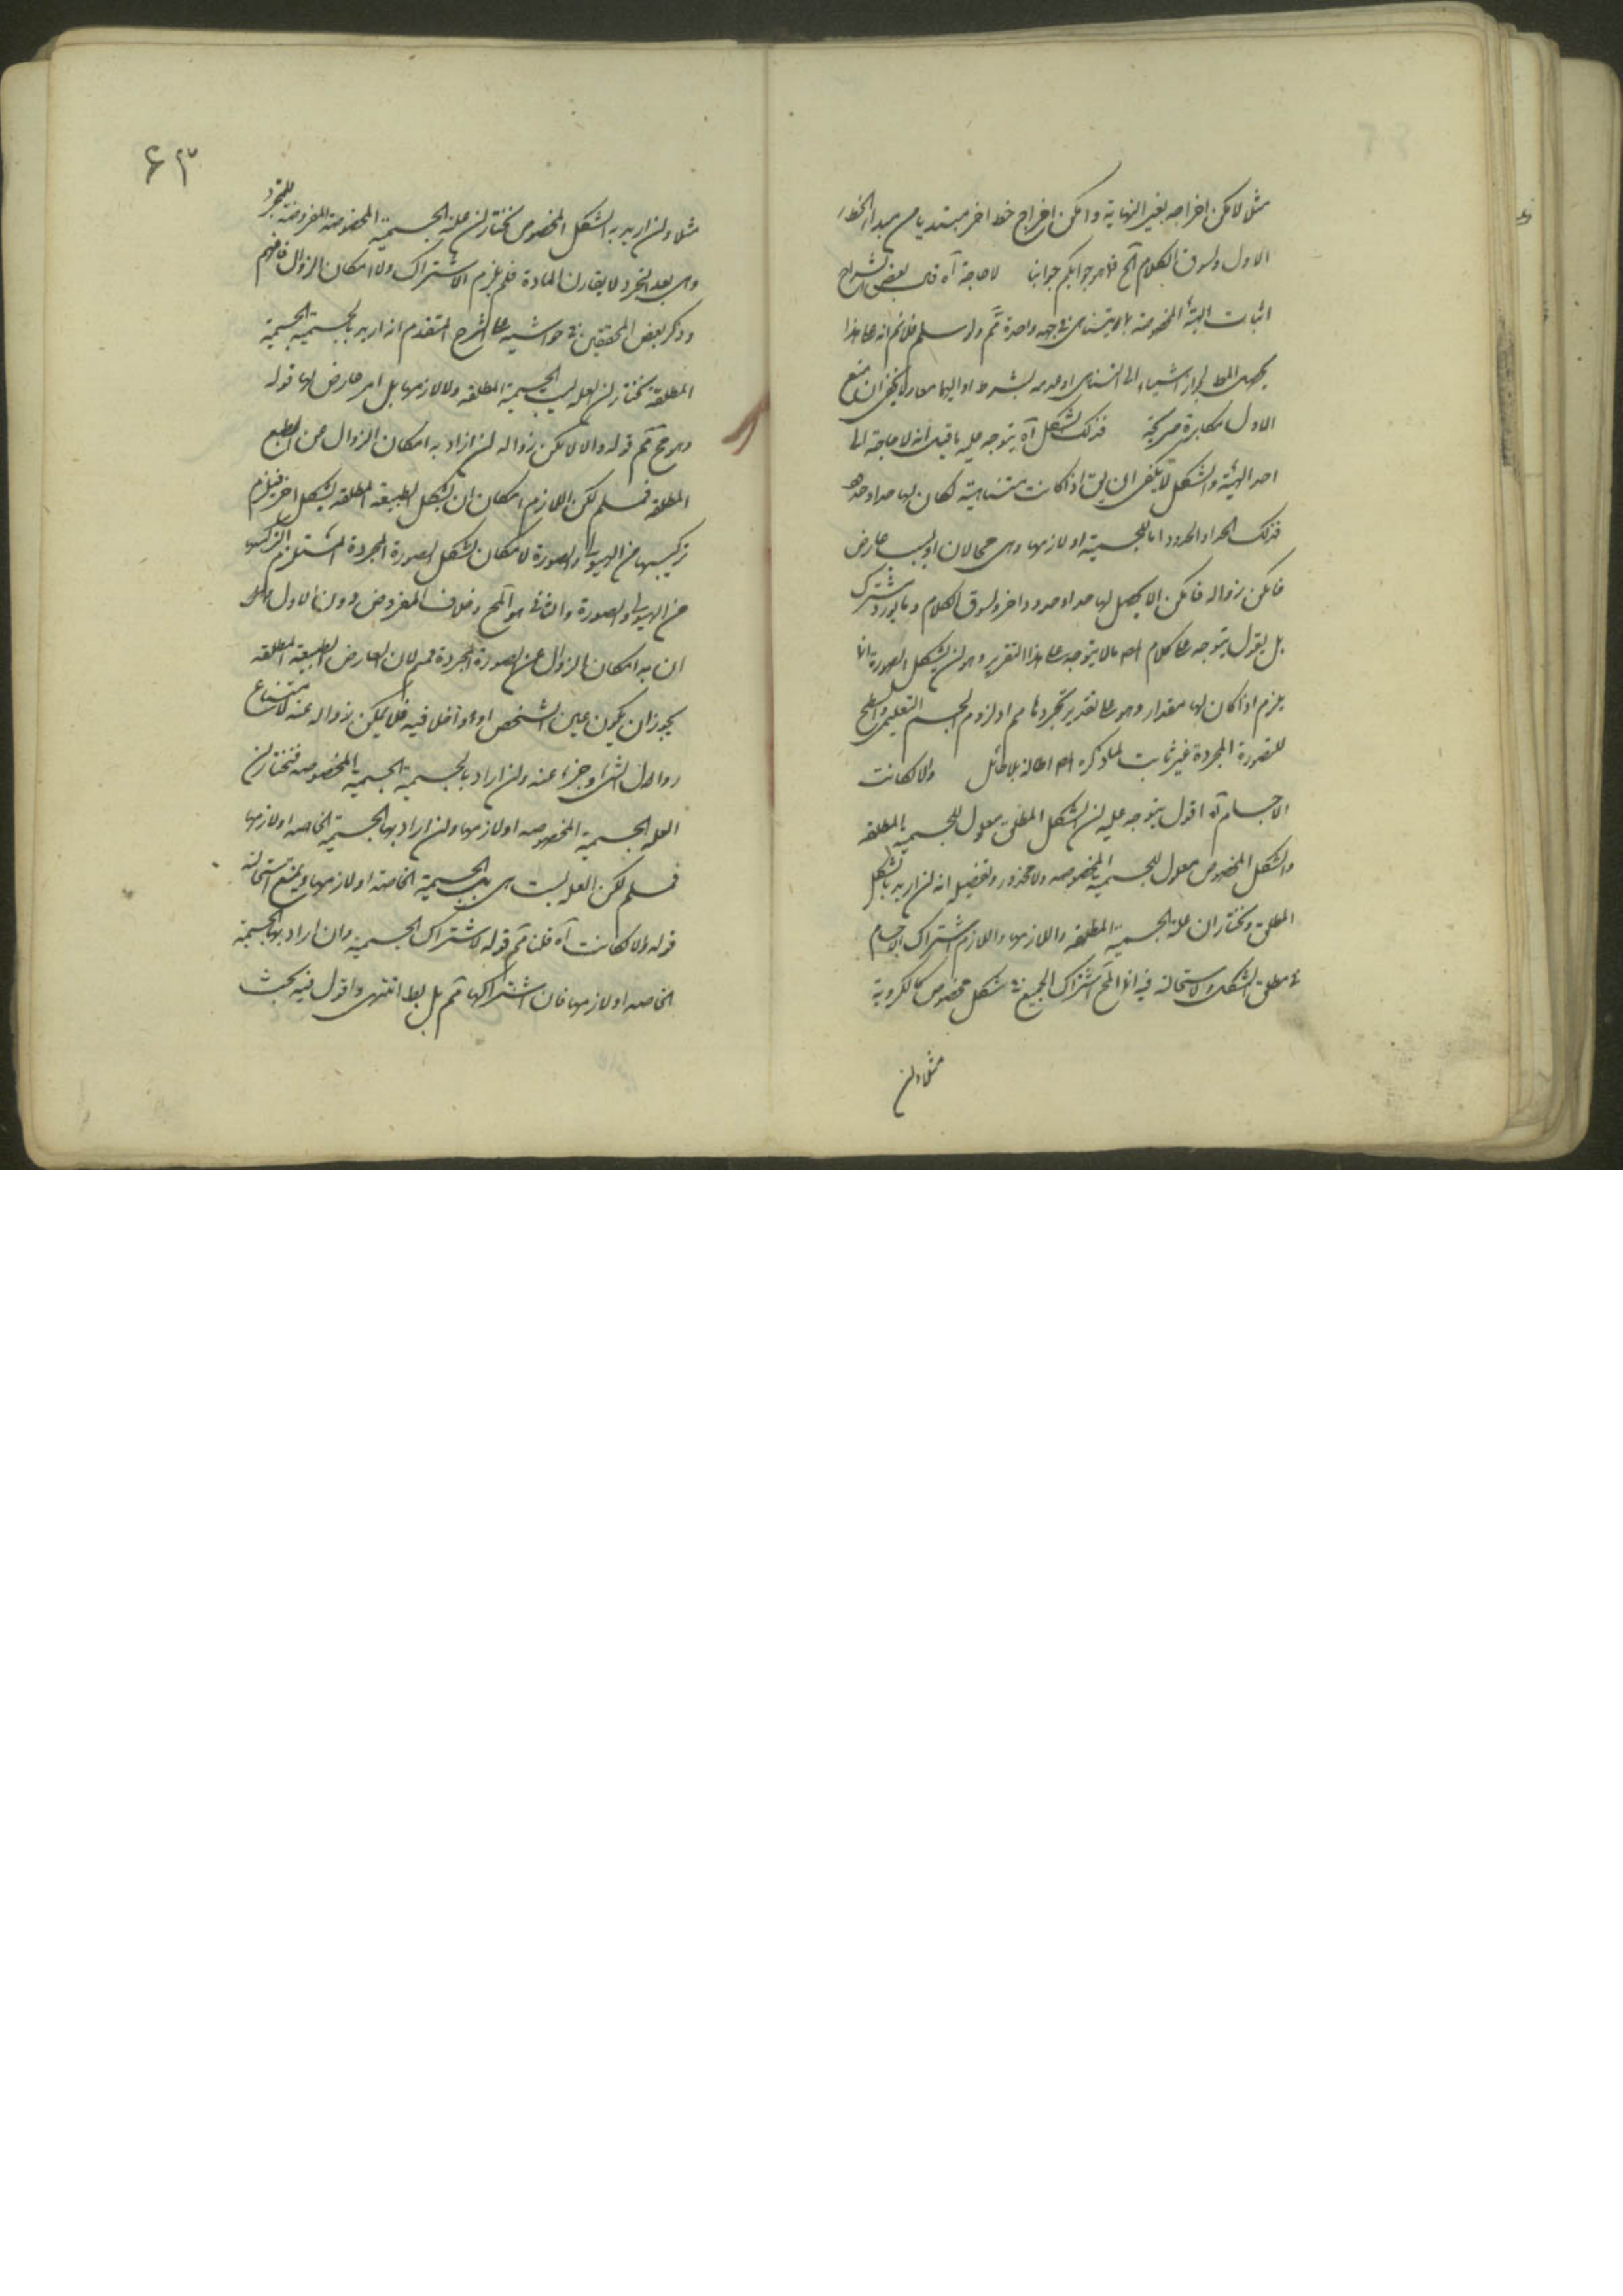 مثلا لامكن اخراجه بغير النهاية وامكن اخراج خط اخر مبتديا من مبدا الخط
الاول ولسوق الكلام الخ فما هو جوابكم جوابنا لا حاجة آه قال بعض الشراح
اثبات الهيئة المخصوصة بالتناهى فى جهة واحدة مم ولو سلم فلا نم انه على هذا
يحصل المط لجواز استناد الى التناهى وحده بشرط او اليهما معا ولا يخفى ان منع
الاول مكابرة صريحة فذلك الشكل آه يتوجه عليه ما قيل انه لا حاجة الى
اخذ الهيئة والشكل لا يكفى ان يق اذا كانت متناهية لكان لها حد او حدود
فذلك الحد او الحدود اما للجسمية او لازمها وهى محالان او بسبب عارض
فامكن زواله فامكن ان يحصل لها حد او حدود اخر ولسوق الكلام
بل يقول يتوجه على كلام المص ما لا يتوجه على هذا التقرير وهو ان تشكل الصورة انما
يلزم اذا كان لها مقدار وهو على تقدير تجردها مم او لزوم الجسم التعليمى والسطح
للصورة المجردة غير ثابت لما ذكره المص اطالة بلا طائل والا لكانت
الاجسام آه اقول يتوجه عليه ان الشكل المطلق معلول للجسمية المطلقه
والشكل المخصوص معلول للجسمية المخصوصه ولا محذور وتفصيله انه ان اريد بالشكل
المطلق ونختار ان علة الجسمية المطلقه واللازمها واللازم اشتراك الاجسام
فى مطلق الشكل ولا استحالة فيه انما المح اشتراك الجميع فى شكل مخصوص كالكروية
مثلا وان
٦٣
مثلا وان اريد به الشكل المخصوص نختار ان علة الجسمية المخصوصة المفروضة للتجرد
وهى بعد التجرد لا يقارن المادة فلم يلزم الاشتراك ولا امكان الزوال فافهم
وذكر بعض المحققين فى حواشيه على الشرح المتقدم ان اريد بالجسمية الجسمية
المطلقة نختار ان العلة ليست الجسمية المطلقه ولا لازمها بل امر عارض لها قوله
وهو مح مم قوله والا لامكن زواله ان اراد به امكان الزوال عن الطبع
المطلقه فمسلم لكن اللازم امكان ان يشكل الطبيعة المطلقه بشكل اخر فيلزم
تركيبها من الهيولى والصورة لا مكان تشكل الصورة المجردة المستلزم لتركيبها
من الهيولى والصورة والثانى هو المح وخلاف المفروض دون الاول وان
ان به امكان الزوال عن الصورة المجردة فمم لان العارض الطبيعة المطلقه
يجوز ان يكون عين الشخص او داخلا فيه فلا يمكن زواله عنه لامتناع
زوال الشئ او جزءا عنه وان اراد بالجسمية الجسمية المخصوصه فنختار ان
العلة الجسمية المخصوصه او لازمها وان اراد بها الجسمية الخاصه او لازمها
فمسلم لكن العلة ليست هى بل الجسمية الخاصة او لازمها ويمنع استحالة
قوله والا لكانت آه قلنا مم قوله لاشتراك الجسمية وان اراد بها الجسمية
الخاصه او لازمها فان اشتراكها مم بل بط انتهى واقول فيه بحث